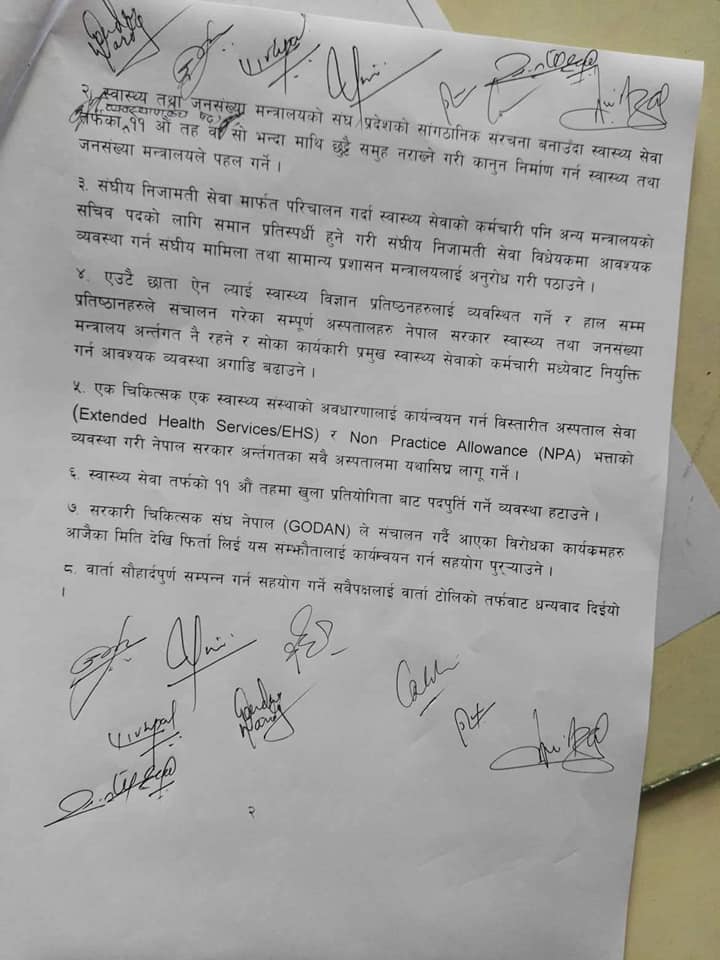 २. स्वास्थ्य तथा जनसंख्या मन्त्रालयको संघ प्रदेशको सांगठानिक संरचना बनाउँदा स्वास्थ्य सेवा
तर्फका ११ औं तह वा सो भन्दा माथि छुट्टै समुह नराख्ने गरी कानुन निर्माण गर्न स्वास्थ्य तथा
जनसंख्या मन्त्रालयले पहल गर्ने ।
३. संघीय निजामती सेवा मार्फत परिचालन गर्दा स्वास्थ्य सेवाको कर्मचारी पनि अन्य मन्त्रालयको
सचिव पदको लागि समान प्रतिस्पर्धी हुने गरी संघीय निजामती सेवा विधेयकमा आवश्यक
व्यवस्था गर्न संघीय मामिला तथा सामान्य प्रशासन मन्त्रालयलाई अनुरोध गरी पठाउने ।
४. एउटै छाता ऐन ल्याई स्वास्थ्य विज्ञान प्रतिष्ठनहरुलाई व्यवस्थित गर्ने र हाल सम्म
प्रतिष्ठानहरुले संचालन गरेका सम्पूर्ण अस्पतालहरु नेपाल सरकार स्वास्थ्य तथा जनसंख्या
मन्त्रालय अर्न्तगत नै रहने र सोका कार्यकारी प्रमुख स्वास्थ्य सेवाको कर्मचारी मध्येवाट नियुक्ति
गर्न आवश्यक व्यवस्था अगाडि बढाउने ।
५. एक चिकित्सक एक स्वास्थ्य संस्थाको अवधारणालाई कार्यन्वयन गर्न विस्तारीत अस्पताल सेवा
(Extended Health Services/EHS) र Non Practice Allowance (NPA) भत्ताको
व्यवस्था गरी नेपाल सरकार अर्न्तगतका सवै अस्पतालमा यथासिघ्र लागू गर्ने ।
६. स्वास्थ्य सेवा तर्फको ११ औं तहमा खुला प्रतियोगिता बाट पदपुर्ति गर्ने व्यवस्था हटाउने ।
७. सरकारी चिकित्सक संघ नेपाल (GODAN) ले संचालन गर्दै आएका विरोधका कार्यक्रमहरु
आजैका मिति देखि फिर्ता लिई यस सम्झौतालाई कार्यान्वयन गर्न सहयोग पुर्‍याउने ।
८. वार्ता सौहार्दपुर्ण सम्पन्न गर्न सहयोग गर्ने सवैपक्षलाई वार्ता टोलिको तर्फवाट धन्यवाद दिईयो
।
२